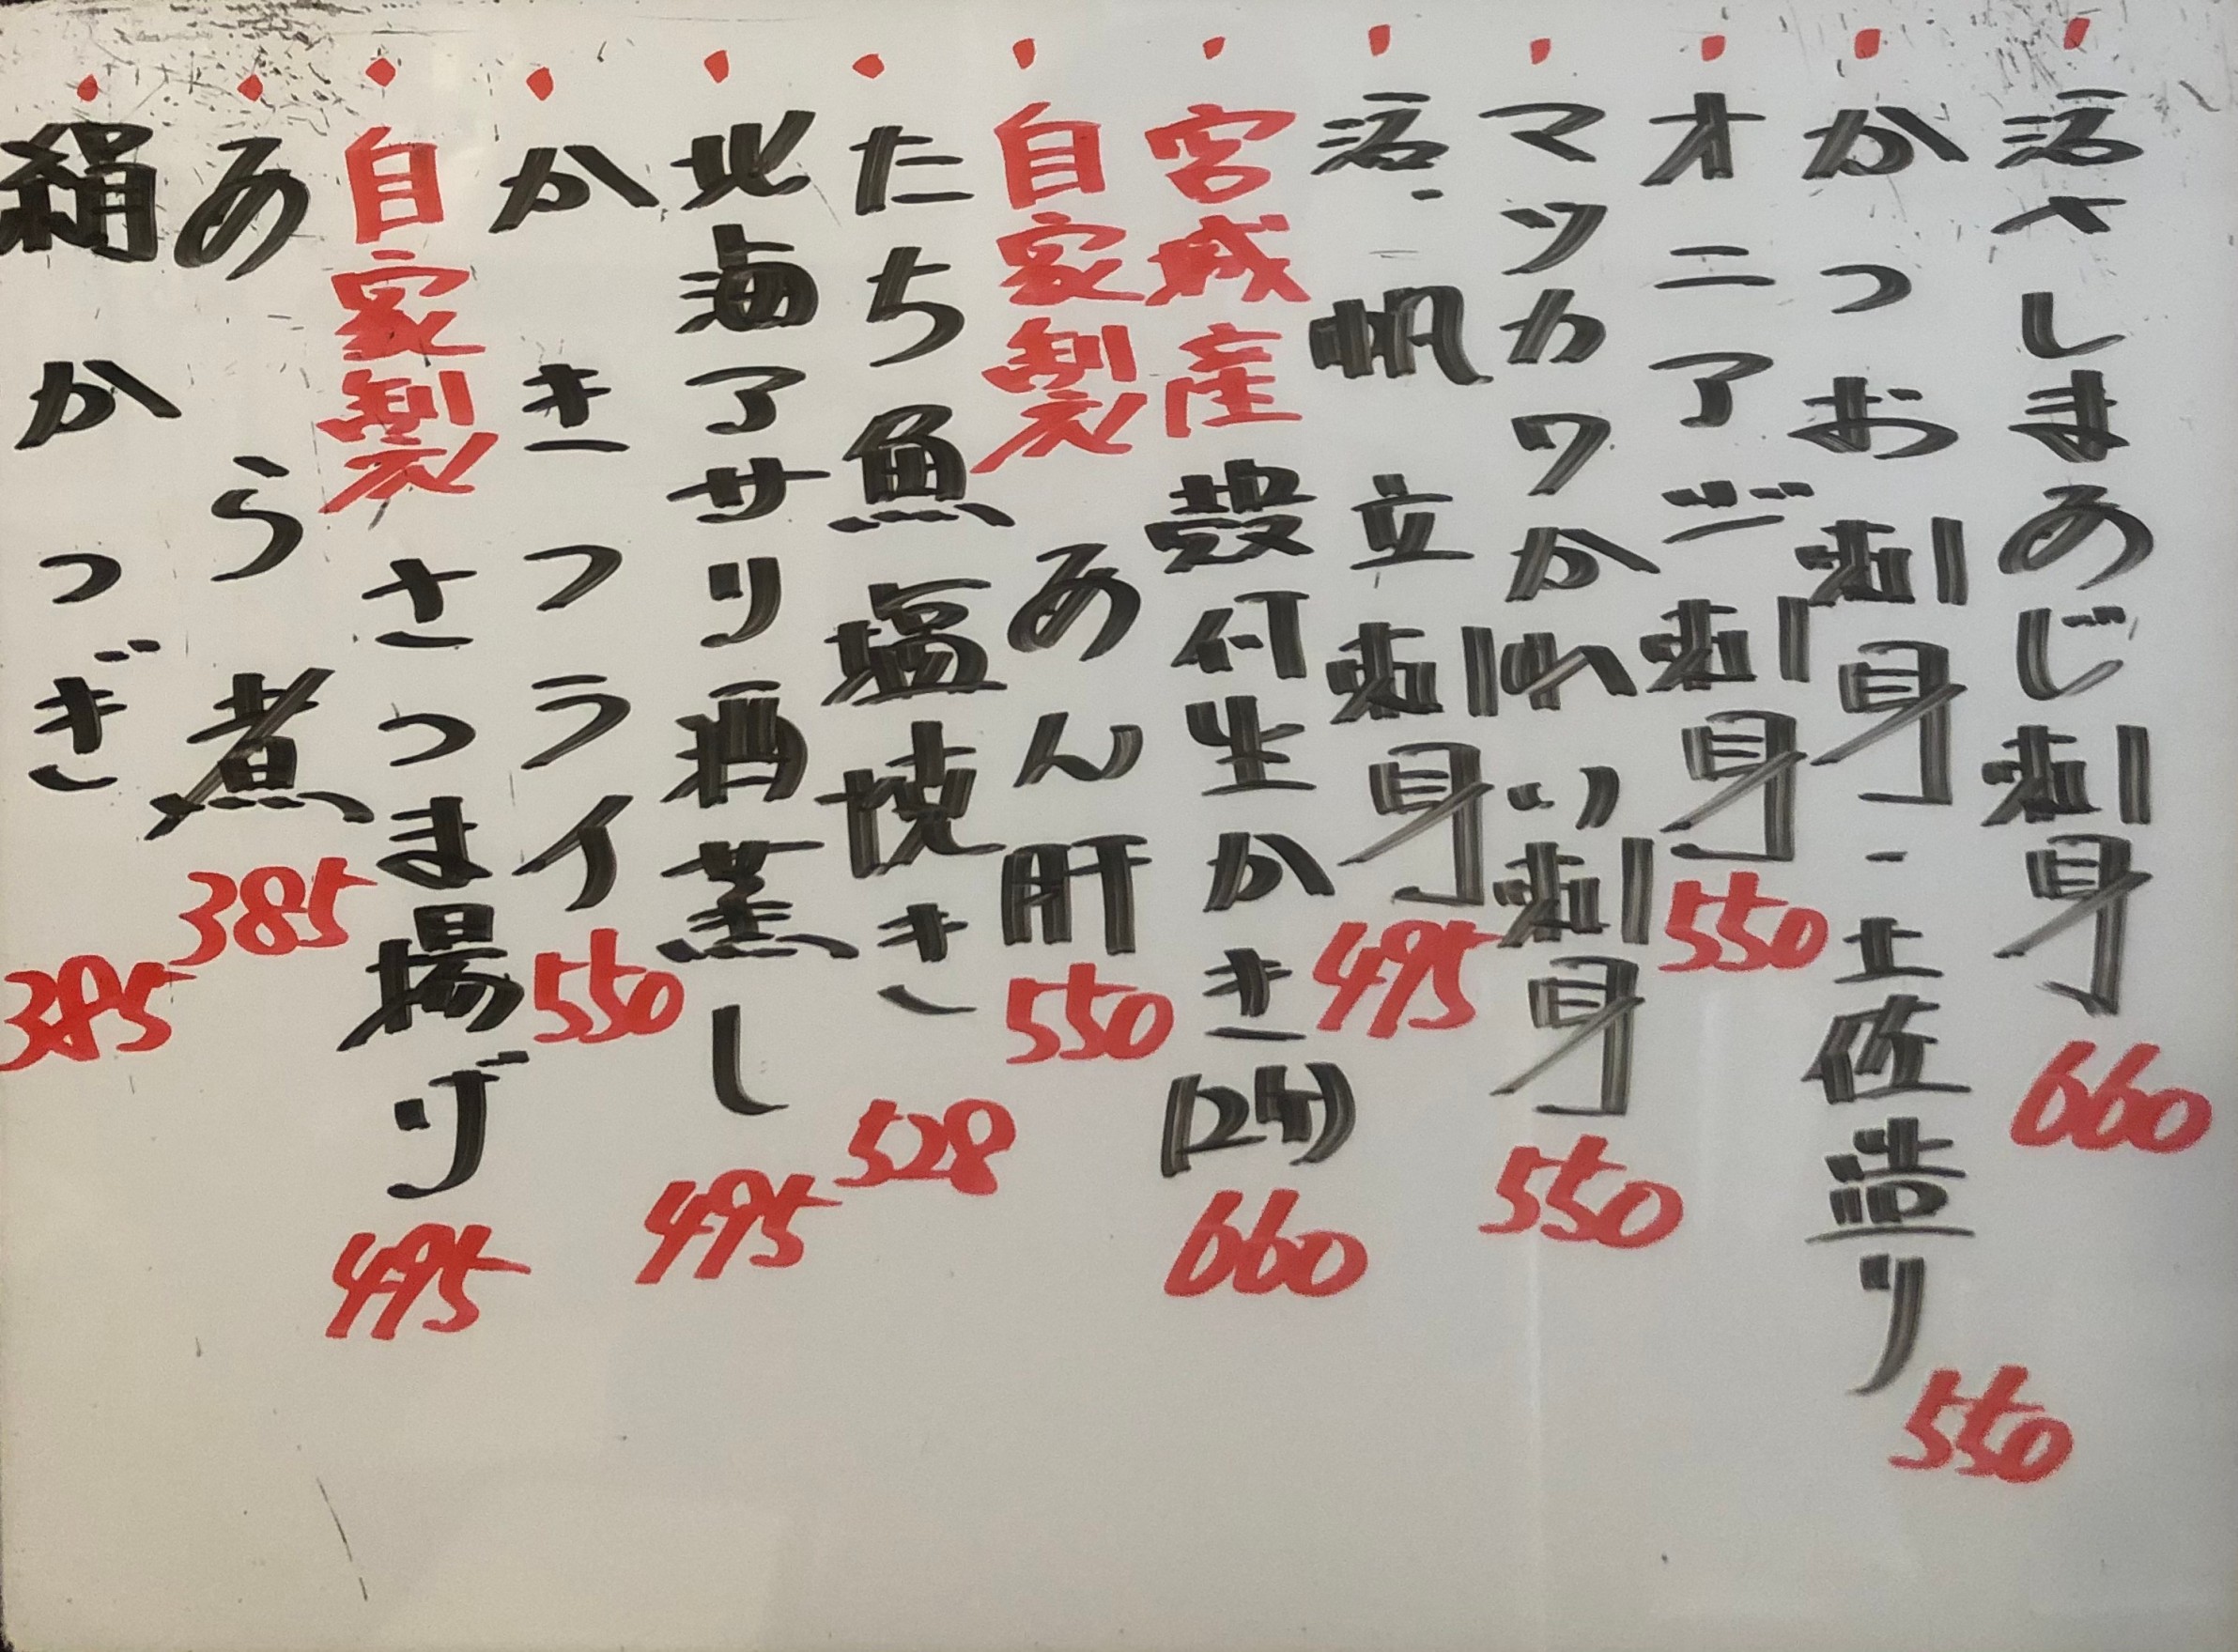 活〆しまあじ刺身 660
かつお刺身・土佐造り 550
オニアジ刺身 550
マツカワかれい刺身 550
活・帆立刺身 495
宮城産殻付生かき(2ケ) 660
自家製あん肝 550
たち魚塩焼き 528
北海アサリ酒蒸し 495
かきフライ 550
自家製さつま揚げ 495
あら煮 385
絹かつぎ 385